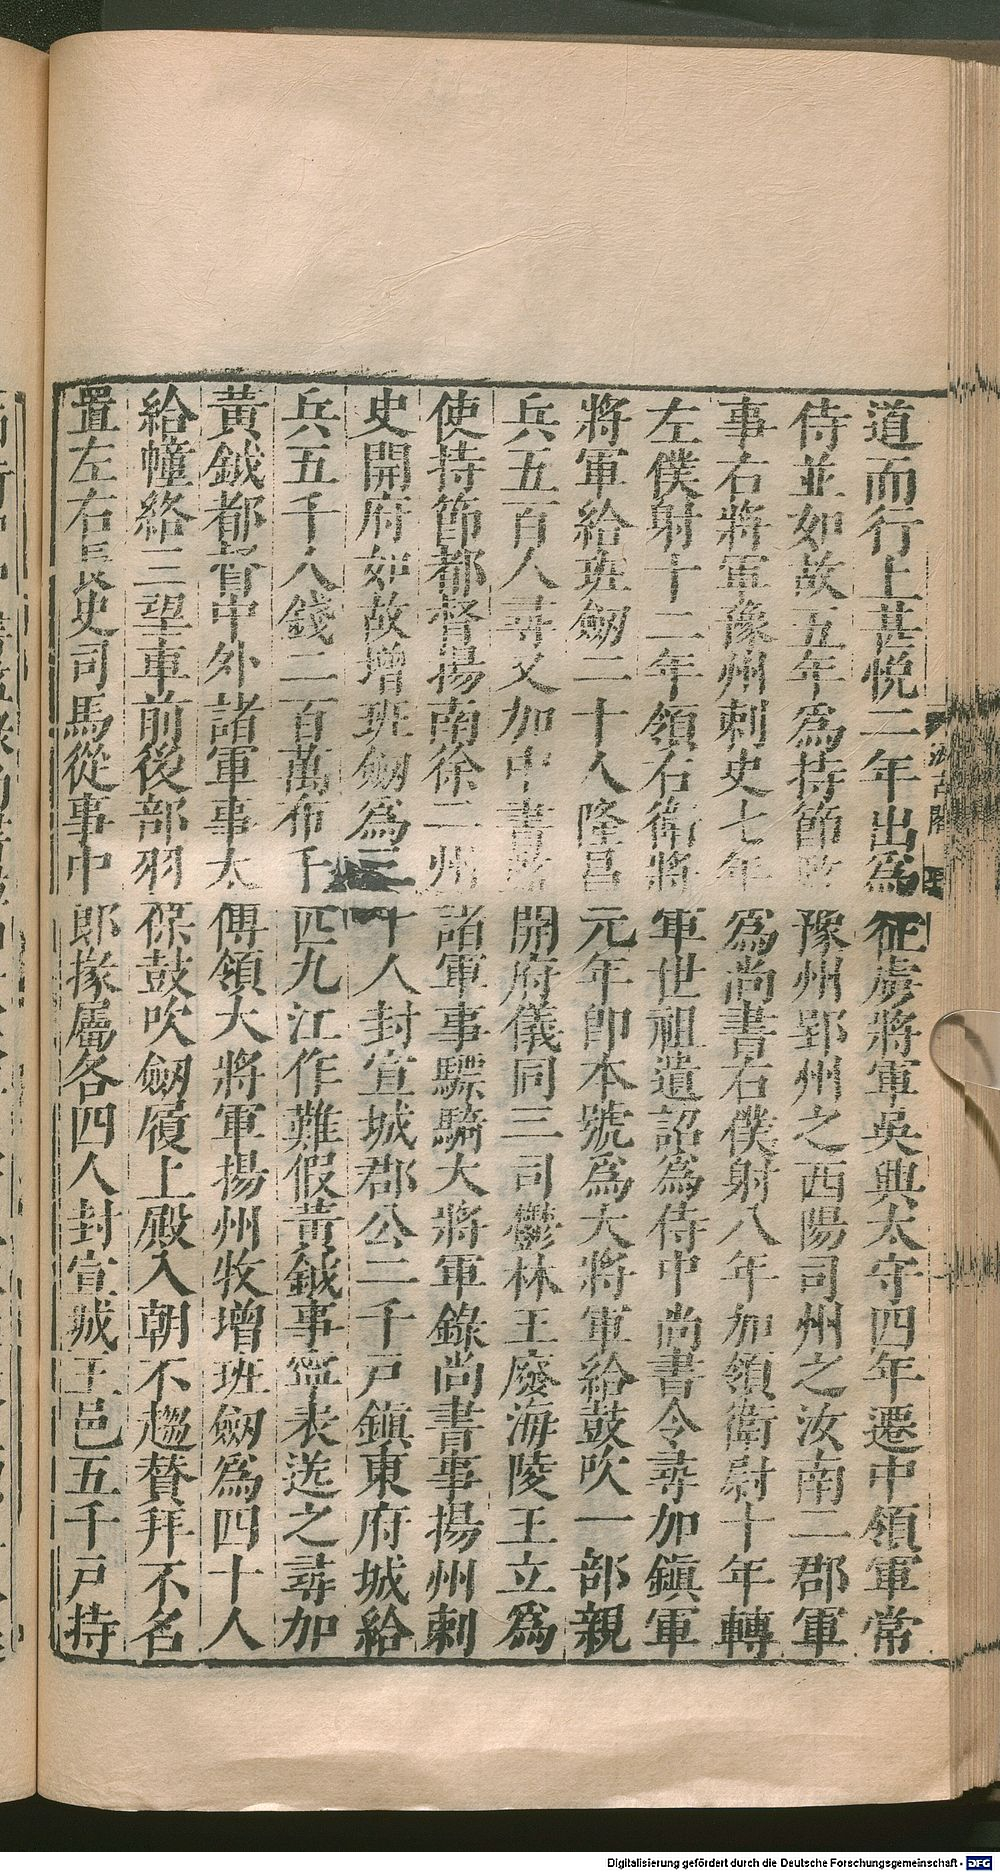 道而行上甚悅二年出爲征虜將軍吳興太守四年遷中領軍常
侍並如故五年爲持節監豫州郢州之西陽司州之汝南二郡軍
事右將軍豫州刺史七年爲尚書右僕射八年加領衛尉十年轉
左僕射十一年領右衛將軍世祖遺詔爲侍中尚書令尋加鎮軍
將軍給班劒二十人隆昌元年卽本號爲大將軍給鼓吹一部親
兵五百人尋又加中書監開府儀同三司鬱林王廢海陵王立爲
使持節都督揚南徐二州諸軍事驃騎大將軍錄尚書事揚州刺
史開府如故增班劒爲三十人封宣城郡公二千戶鎮東府城給
兵五千人錢二百萬布千匹九江作難假黃鉞事寧表送之尋加
黃鉞都督中外諸軍事太傅領大將軍揚州牧增班劒爲四十人
給幢絡三望車前後部羽葆鼓吹劒履上殿入朝不趨贊拜不名
置左右長史司馬從事中郎掾屬各四人封宣城王邑五千戶持
汲古閣
Digitalisierung gefördert durch die Deutsche Forschungsgemeinschaft - DFG